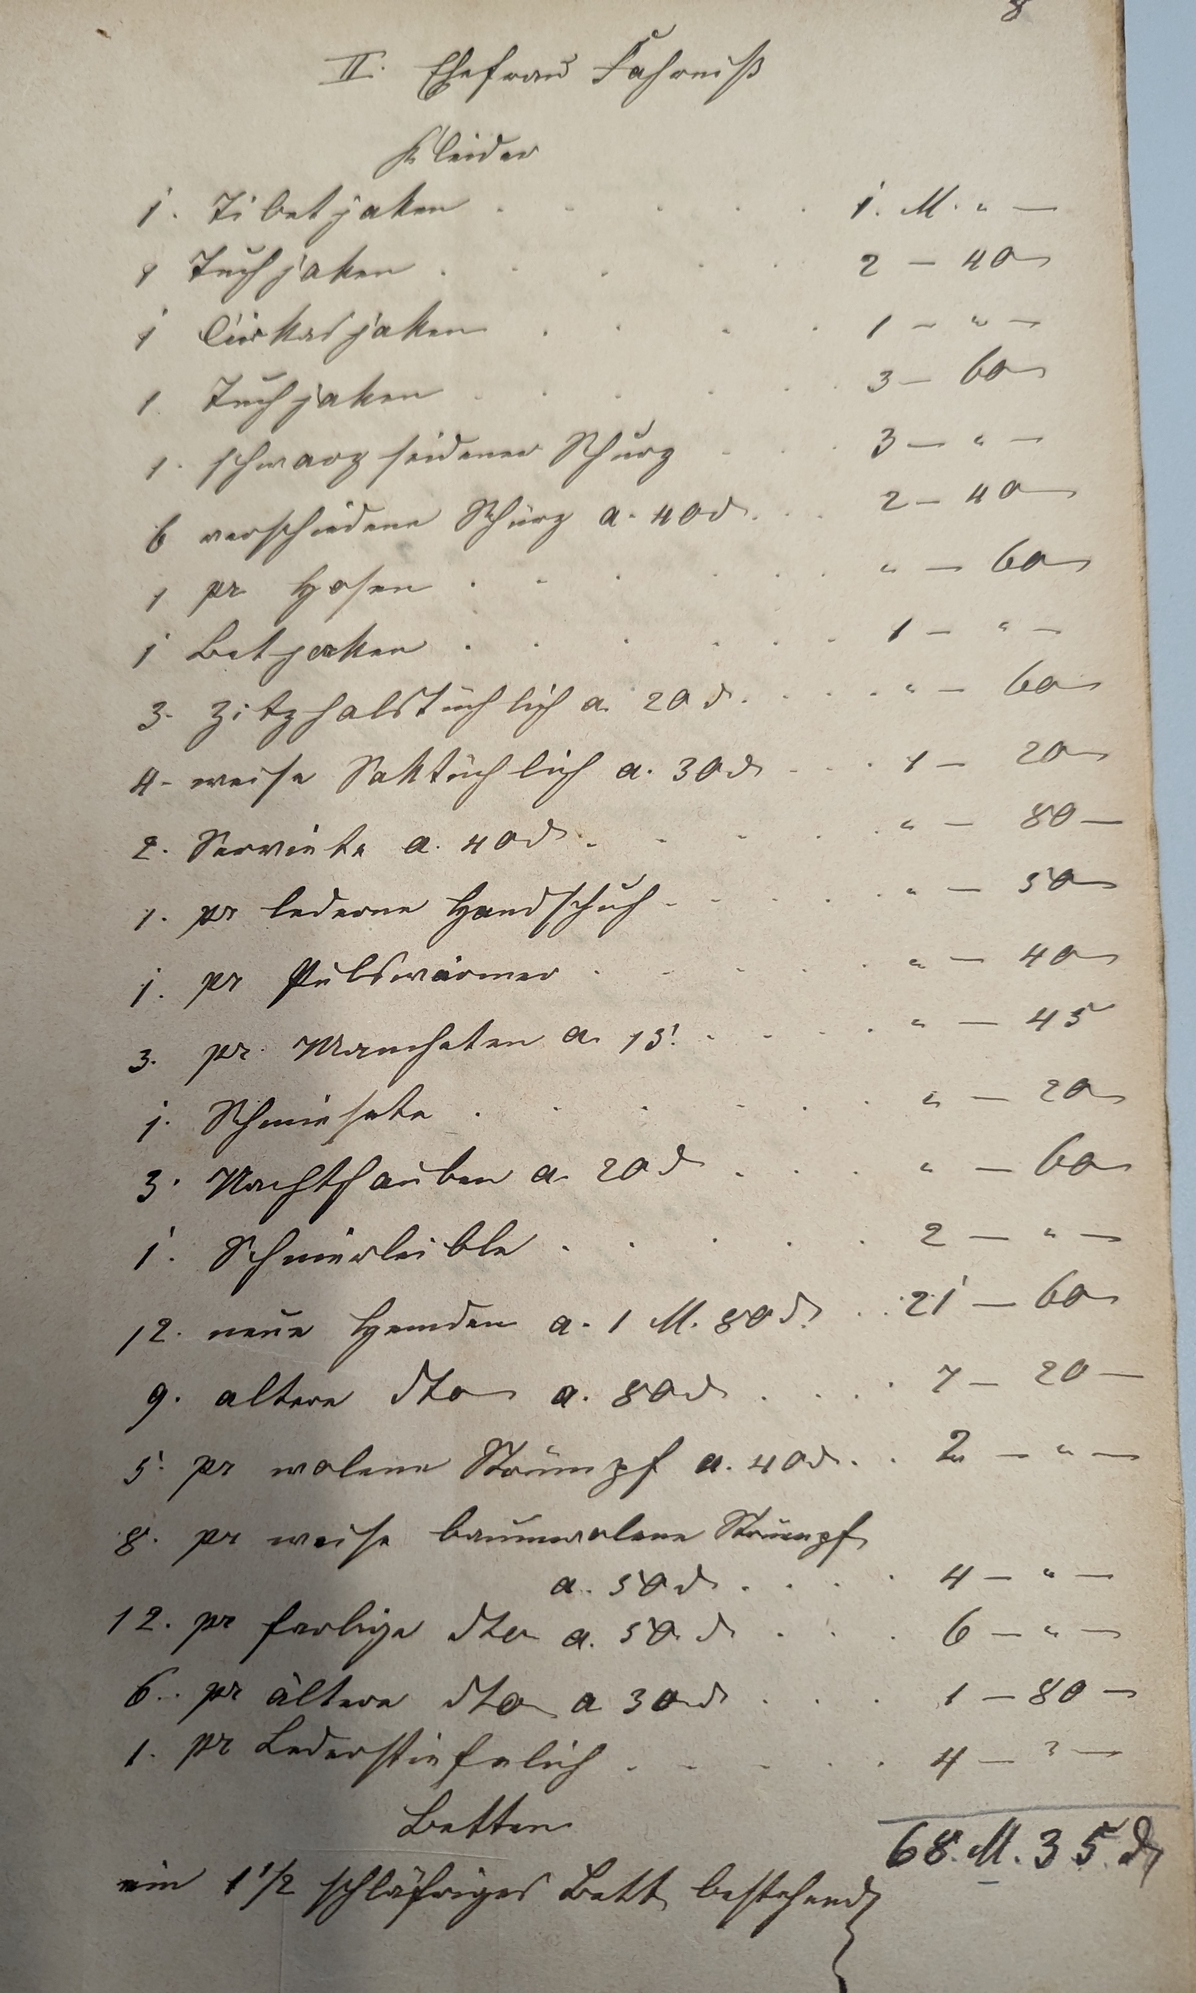 8
II. Ehefrau Fahrniß
Kleider
1. Tibetjaken . . . . . 1. M. " —
1 Tuchjaken . . . . . 2 — 40
1 Cirkasjaken . . . . 1 — " —
1. Tuchjaken . . . . . 3 — 60
1. schwarz seidener Schurz . . . 3 — " —
6 verschiedene Schürz a. 40 d. . . 2 — 40
1 pr Hosen . . . . . " — 60
1 Betjaken . . . . . 1 — " —
3. Zitzhalstüchlich a. 20 d. . . . " — 60
4. weise Saktüchlich a. 30 d . . . 1 — 20
2. Serviete a. 40 d. . . . . " — 80 —
1. pr lederne Handschuh . . . . " — 50
1. pr Pulswärmer . . . . . " — 40
3. pr. Manscheten a. 15. . . . . " — 45
1. Schmiesete . . . . . " — 20
3. Nachthauben a. 20 d . . . " — 60
1. Schnierleible . . . . . 2 — " —
12. neue Hemden a. 1 M. 80 d. . . 21 — 60
9. altere dto a. 80 d . . . . 7 — 20 —
5. pr wolene Strümpf a. 40 d. . . 2 — " —
8. pr weise baumwolene Strümpf
a. 50 d . . . . 4 — " —
12. pr farbige dto a. 50 d . . . 6 — " —
6. pr ältere dto a 30 d . . . 1 — 80 —
1. pr Lederstiefelich . . . . . 4 — " —
Betten
68. M. 35. d
ein 1 1/2 schläfriges Bett bestehend